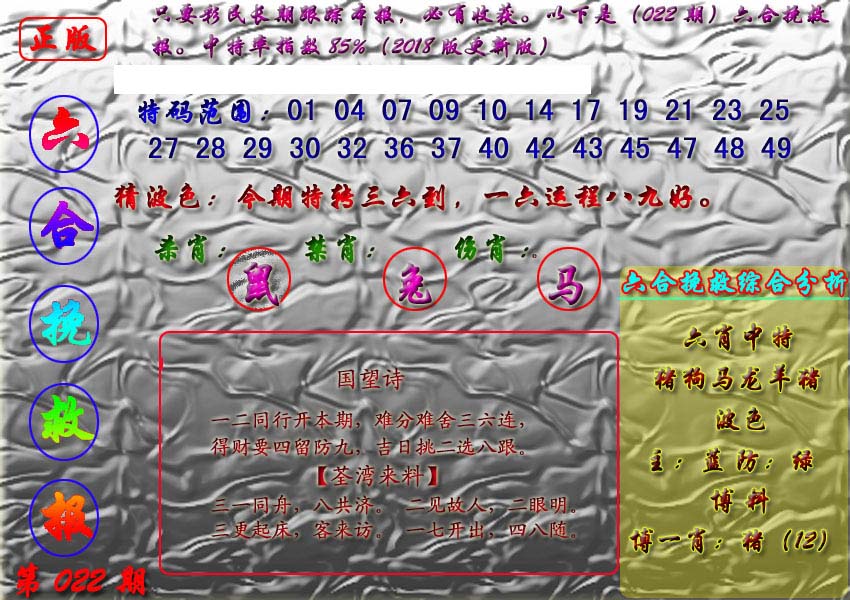 正版
只要彩民长期跟踪本报，必有收获。以下是（022期）六合挽救
报。中特率指数85%（2018版更新版）
六合挽救报
第022期
特码范围：01 04 07 09 10 14 17 19 21 23 25
27 28 29 30 32 36 37 40 42 43 45 47 48 49
猜波色：今期特转三六到，一六运程八九好。
杀肖：鼠 禁肖：兔 伤肖：马
国望诗
一二同行开本期，难分难舍三六连，
得财要四留防九，吉日挑二选八跟。
【荃湾来料】
三一同舟，八共济。 二见故人，二眼明。
三更起床，客来访。 一七开出，四八随。
六合挽救综合分析
六肖中特
猪狗马龙羊猪
波色
主：蓝防：绿
博料
博一肖：猪（12）